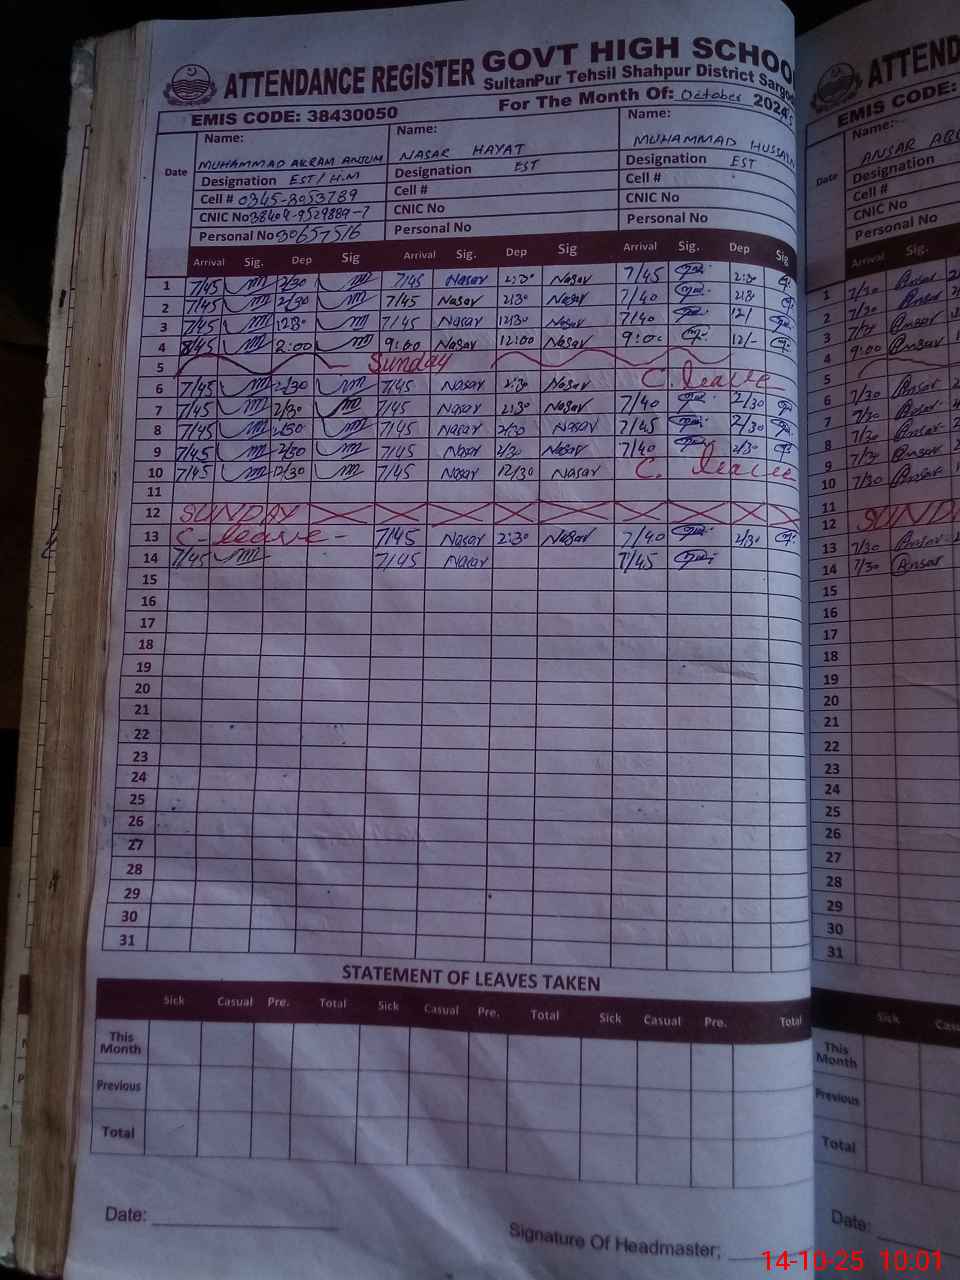 ATTENDANCE REGISTER GOVT HIGH SCHOO
SultanPur Tehsil Shahpur District Sargo
EMIS CODE: 38430050 For The Month Of: October 2024
Date Name: Name: Name:
MUHAMMAD AKRAM ANJUM NASAR HAYAT MUHAMMAD HUSSAIN
Designation EST/H.M Designation EST Designation EST
Cell # 0345-8053789 Cell # Cell #
CNIC No 38404-9529889-7 CNIC No CNIC No
Personal No 30657516 Personal No Personal No
Arrival Sig. Dep Sig Arrival Sig. Dep Sig Arrival Sig. Dep Sig
1 7/45 2/30 7/45 Nasar 2:30 Nasar 7/45 2:30
2 7/45 2/30 7/45 Nasar 2:30 Nasar 7/40
3 7/45 1230 7/45 Nasar 12/30 Nasar 7/40 12/
4 8/45 2:00 9:00 Nasar 12:00 Nasar 9:00 12/-
5 Sunday
6 7/45 2/30 7/45 Nasar 2:30 Nasar C. leave
7 7/45 2/30 7/45 Nasar 2:30 Nasar 7/40 2/30
8 7/45 2/30 7/45 Nasar 2/30 Nasar 7/45 2/30
9 7/45 2/30 7/45 Nasar 2/30 Nasar 7/40 2/30
10 7/45 12/30 7/45 Nasar 12/30 Nasar C. leave
11
12 SUNDAY
13 C- leave - 7/45 Nasar 2:30 Nasar 7/40 2/30
14 7/45 7/45 Nasar 7/45
15
16
17
18
19
20
21
22
23
24
25
26
27
28
29
30
31
STATEMENT OF LEAVES TAKEN
Sick Casual Pre. Total Sick Casual Pre. Total Sick Casual Pre. Total
This Month
Previous
Total
Date: Signature Of Headmaster;
ATTEND
EMIS CODE:
Date Name:
ANSAR
Designation
Cell #
CNIC No
Personal No
Arrival Sig.
1 7/30 Ansar
2 7/30 Ansar
3 7/30 Ansar
4 9:00 Ansar
5
6 7/30 Ansar
7 7/30 Ansar
8 7/30 Ansar
9 7/30 Ansar
10 7/30 Ansar
11
12 SUND
13 7/30 Ansar
14 7/30 Ansar
15
16
17
18
19
20
21
22
23
24
25
26
27
28
29
30
31
Sick Cas
This Month
Previous
Total
Date:
14-10-25 10:01